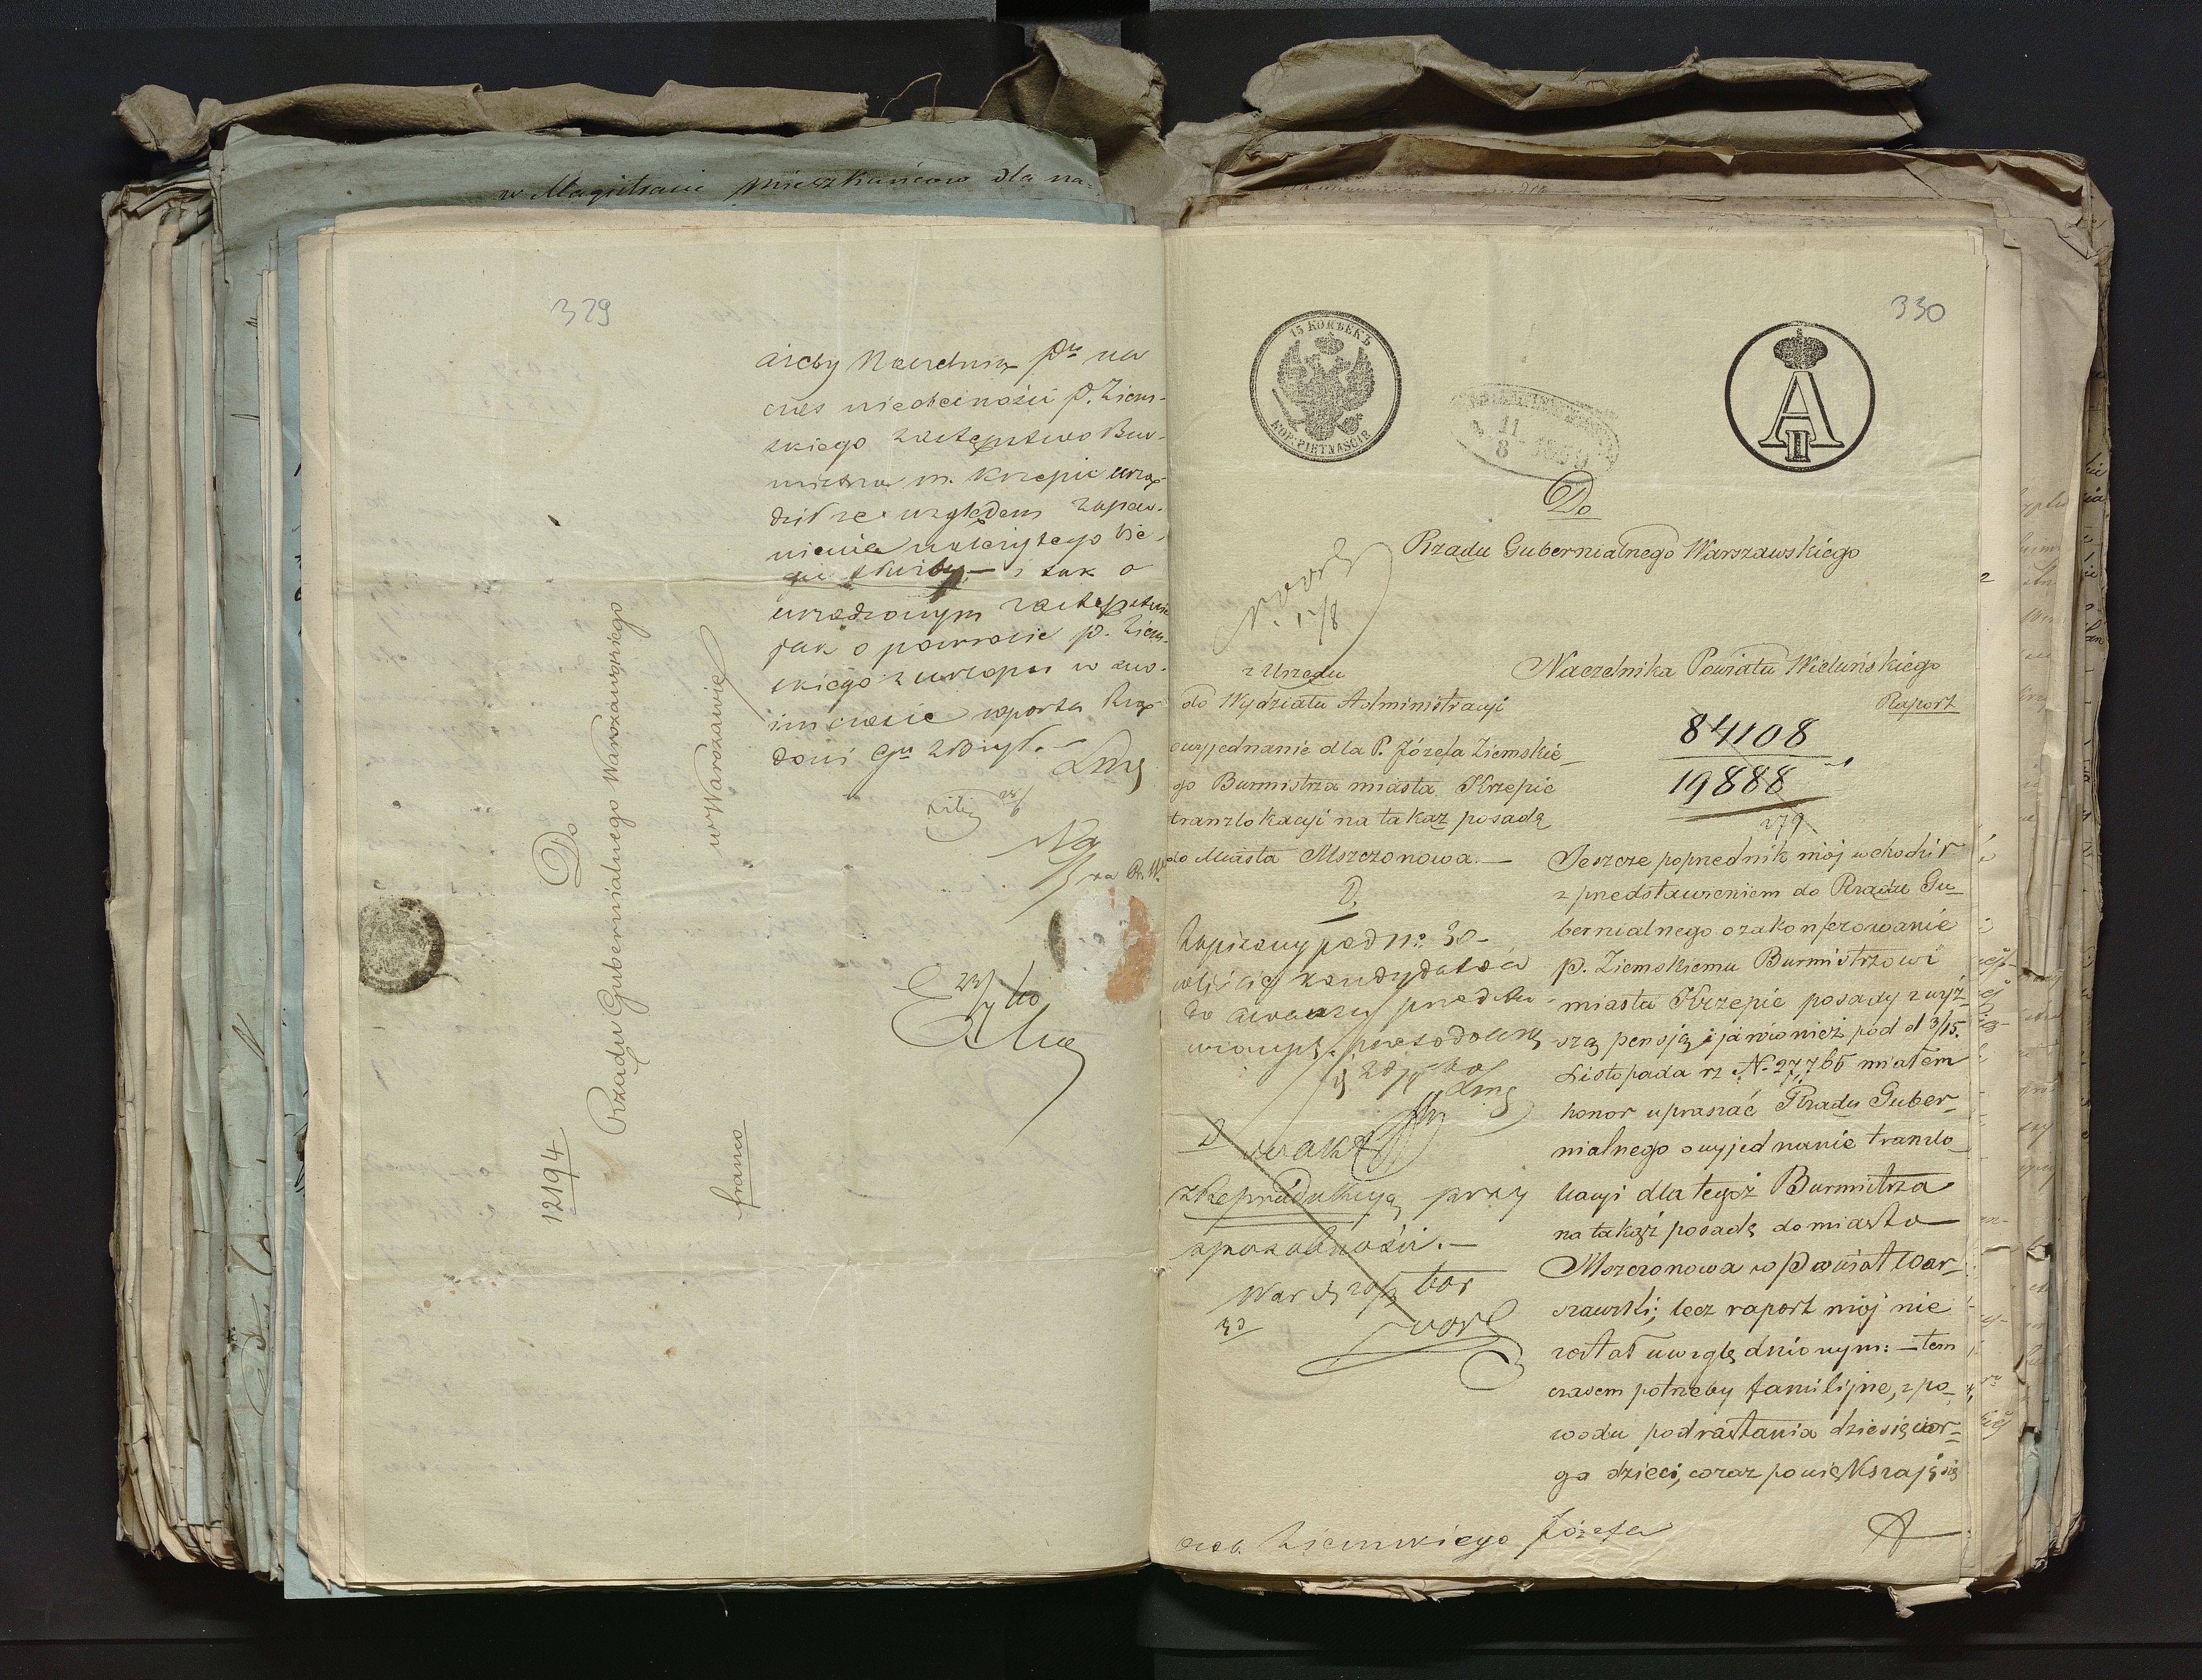 w Magistracie mieszkańców dla na=
329
ażeby Naczelnik Ptu na
czas nieobecności P. Ziem-
skiego zastępstwo Bur-
mistrza m. Krzepic urzą-
dził ze względem zapew-
nienia należytego bie-
gu służby, — i tak o
urządzonym zastępstwie
jak o powrocie p. Ziem-
skiego z urlopu w swo-
im czasie raporta Rzą-
dowi Gu złożył. —
Do
Rządu Gubernialnego Warszawskiego
w Warszawie
12194
franco
330
15 KOPѢEKЪ
KOP: PIĘTNAŚCIE
11
8
1859
A II
Do
Rządu Gubernialnego Warszawskiego
N. 17/8
z Urzędu
Naczelnika Powiatu Wieluńskiego
do Wydziału Administracyi
Raport
o wyjednanie dla P. Józefa Ziemskie_
go Burmistrza miasta Krzepic
tranzlokacyi na takąz posadę
do Miasta Mszczonowa. —
84108
19888
279
Zapisany pod No 30 -
w liście kandydatów
do awansu przedsta-
wionych
D
wakt
z Reprodukcyą przy
sposobności. —
War d 20/
30
Jeszcze poprzednik mój wchodził
z przedstawieniem do Rządu Gu_
bernialnego o zakonferowanie
p. Ziemskiemu Burmistrzowi
miasta Krzepic posady z wyż_
szą pensją i ja również pod d 3/15.
Listopada rz N. 27,765 miałem
honor upraszać Rządu Guber_
nialnego o wyjednanie tranzlo_
kacyi dla tegoż Burmistrza
na takąż posadę do miasta
Mszczonowa w Powiat War_
szawski; lecz raport mój nie
został uwzględnionym: — tem
czasem potrzeby familijne, z po_
wodu podrastania dziesięcior_
ga dzieci, coraz powiększają się
Ziemskiego Józefa